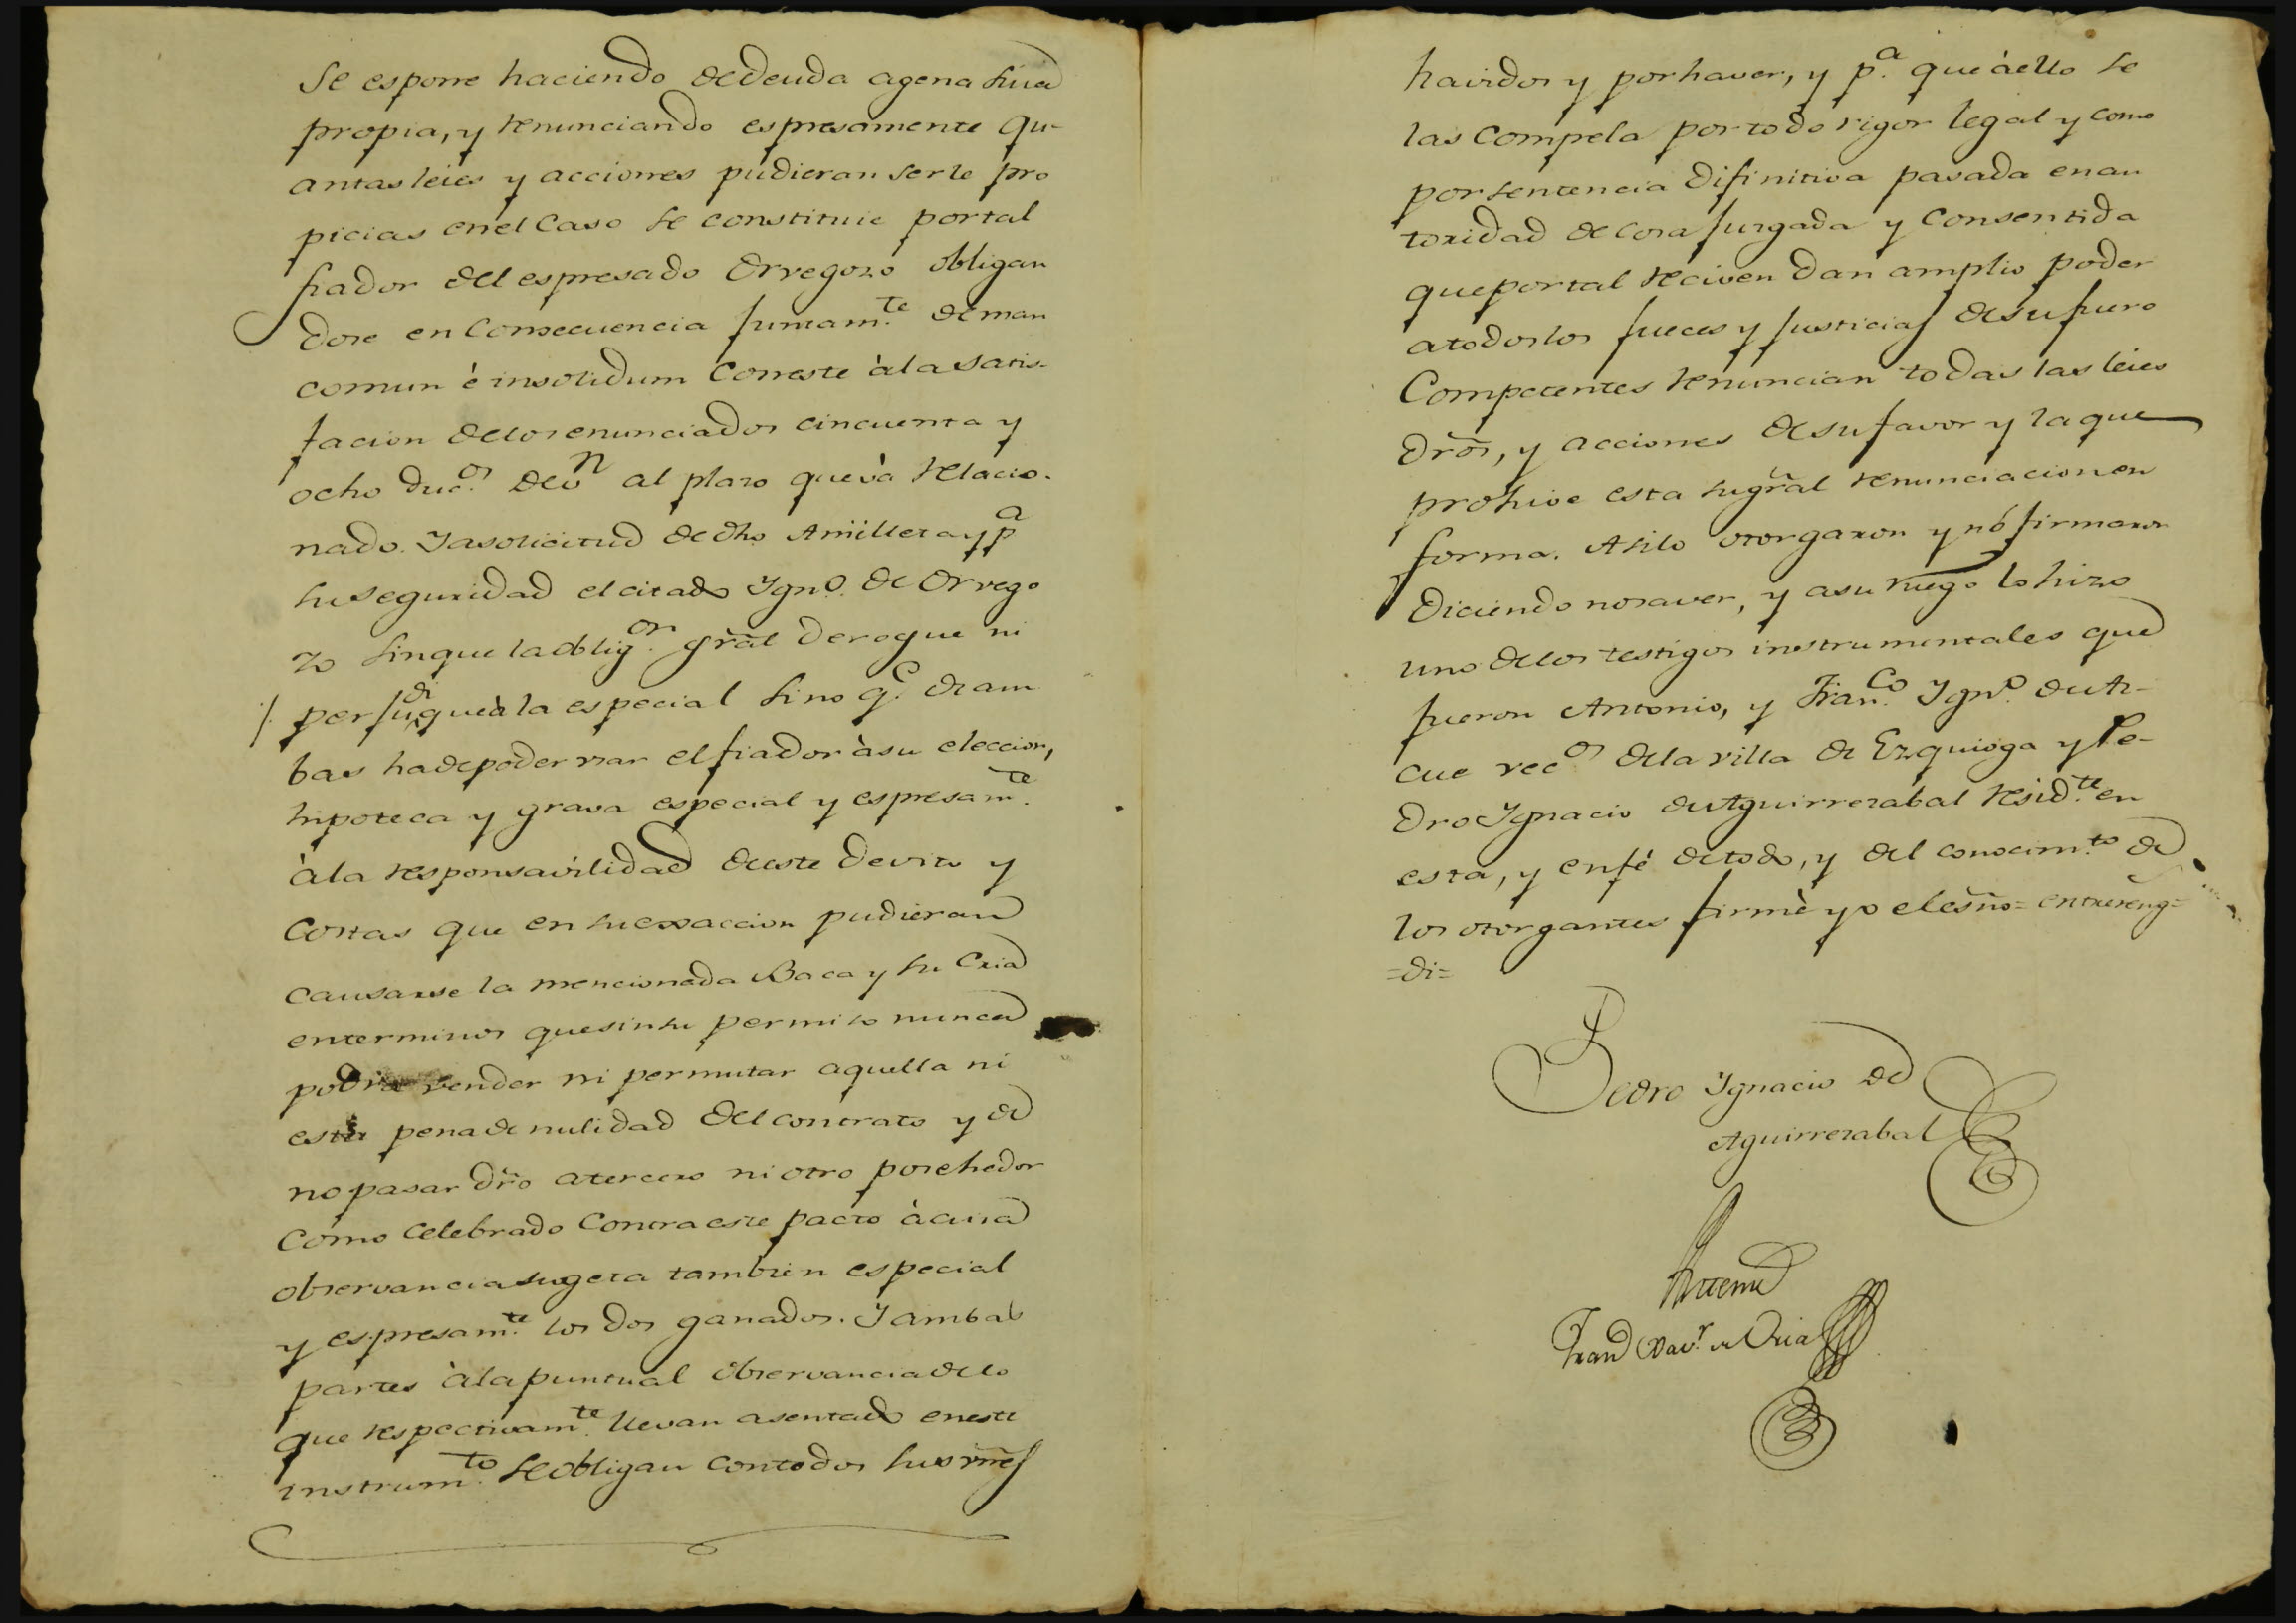 Se espone haciendo de deuda agena suia
propia, y renunciando espresamente qu-
antas leies y acciones pudieran serle pro
picias en el caso se constituie por tal
fiador del espresado Orregozo obligan
dose en consecuencia juntam.te de man
comun è insolidum con este à la satis-
facion de los enunciados cincuenta y
ocho duc.os de v.n al plazo que và relacio-
nado. Y a solicitud de dho Amilleta y p.a
su seguridad el citado Ygn.o de Orrego
zo sin que la oblig.on gral derogue ni
perju,di,que à la especial sino q.e de am
bas ha de poder usar el fiador à su eleccion,
hipoteca y grava especial y espresam.te
à la responsavilidad de este devito y
costas que en su exaccion pudieran
causarse la mencionada Baca y su Cria
en terminos que sin su permiso nunca
podrà vender ni permutar aquella ni
esta pena de nulidad del contrato y de
no pasar dro a tercero ni otro posehedor
como celebrado contra este pacto à cuia
observancia sugeta tambien especial
y espresam.te los dos ganados. Y ambas
partes à la puntual observancia de lo
que respectivam.te llevan asentado en este
instrum.to se obligan con todos sus vnes
havidos y por haver, y p.a que à ello se
las compela por todo rigor legal y como
por sentencia difinitiva pasada en au
toridad de cosa juzgada y consentida
que por tal reciven dan amplio poder
a todos los jueces y justicias de su fuero
Competentes renuncian todas las leies
dros, y acciones de su favor y la que
prohive esta su gral renunciacion en
forma. Asi lo otorgaron y nó firmaron
diciendo no saver, y a su ruego lo hizo
uno de los testigos instrumentales que
fueron Antonio, y Fran.co Ygn.o de Az-
cue vec.os de la villa de Ezquioga y Pe-
dro Ygnacio de Aguirrezabal resid.te en
esta, y en fé de todo, y del conocim.to de
los otorgantes firmè yo el esno = entrereng =
= di =
Pedro Ygnacio de
Aguirrezabal
Antemi
Fran.co Xav.r de Oria